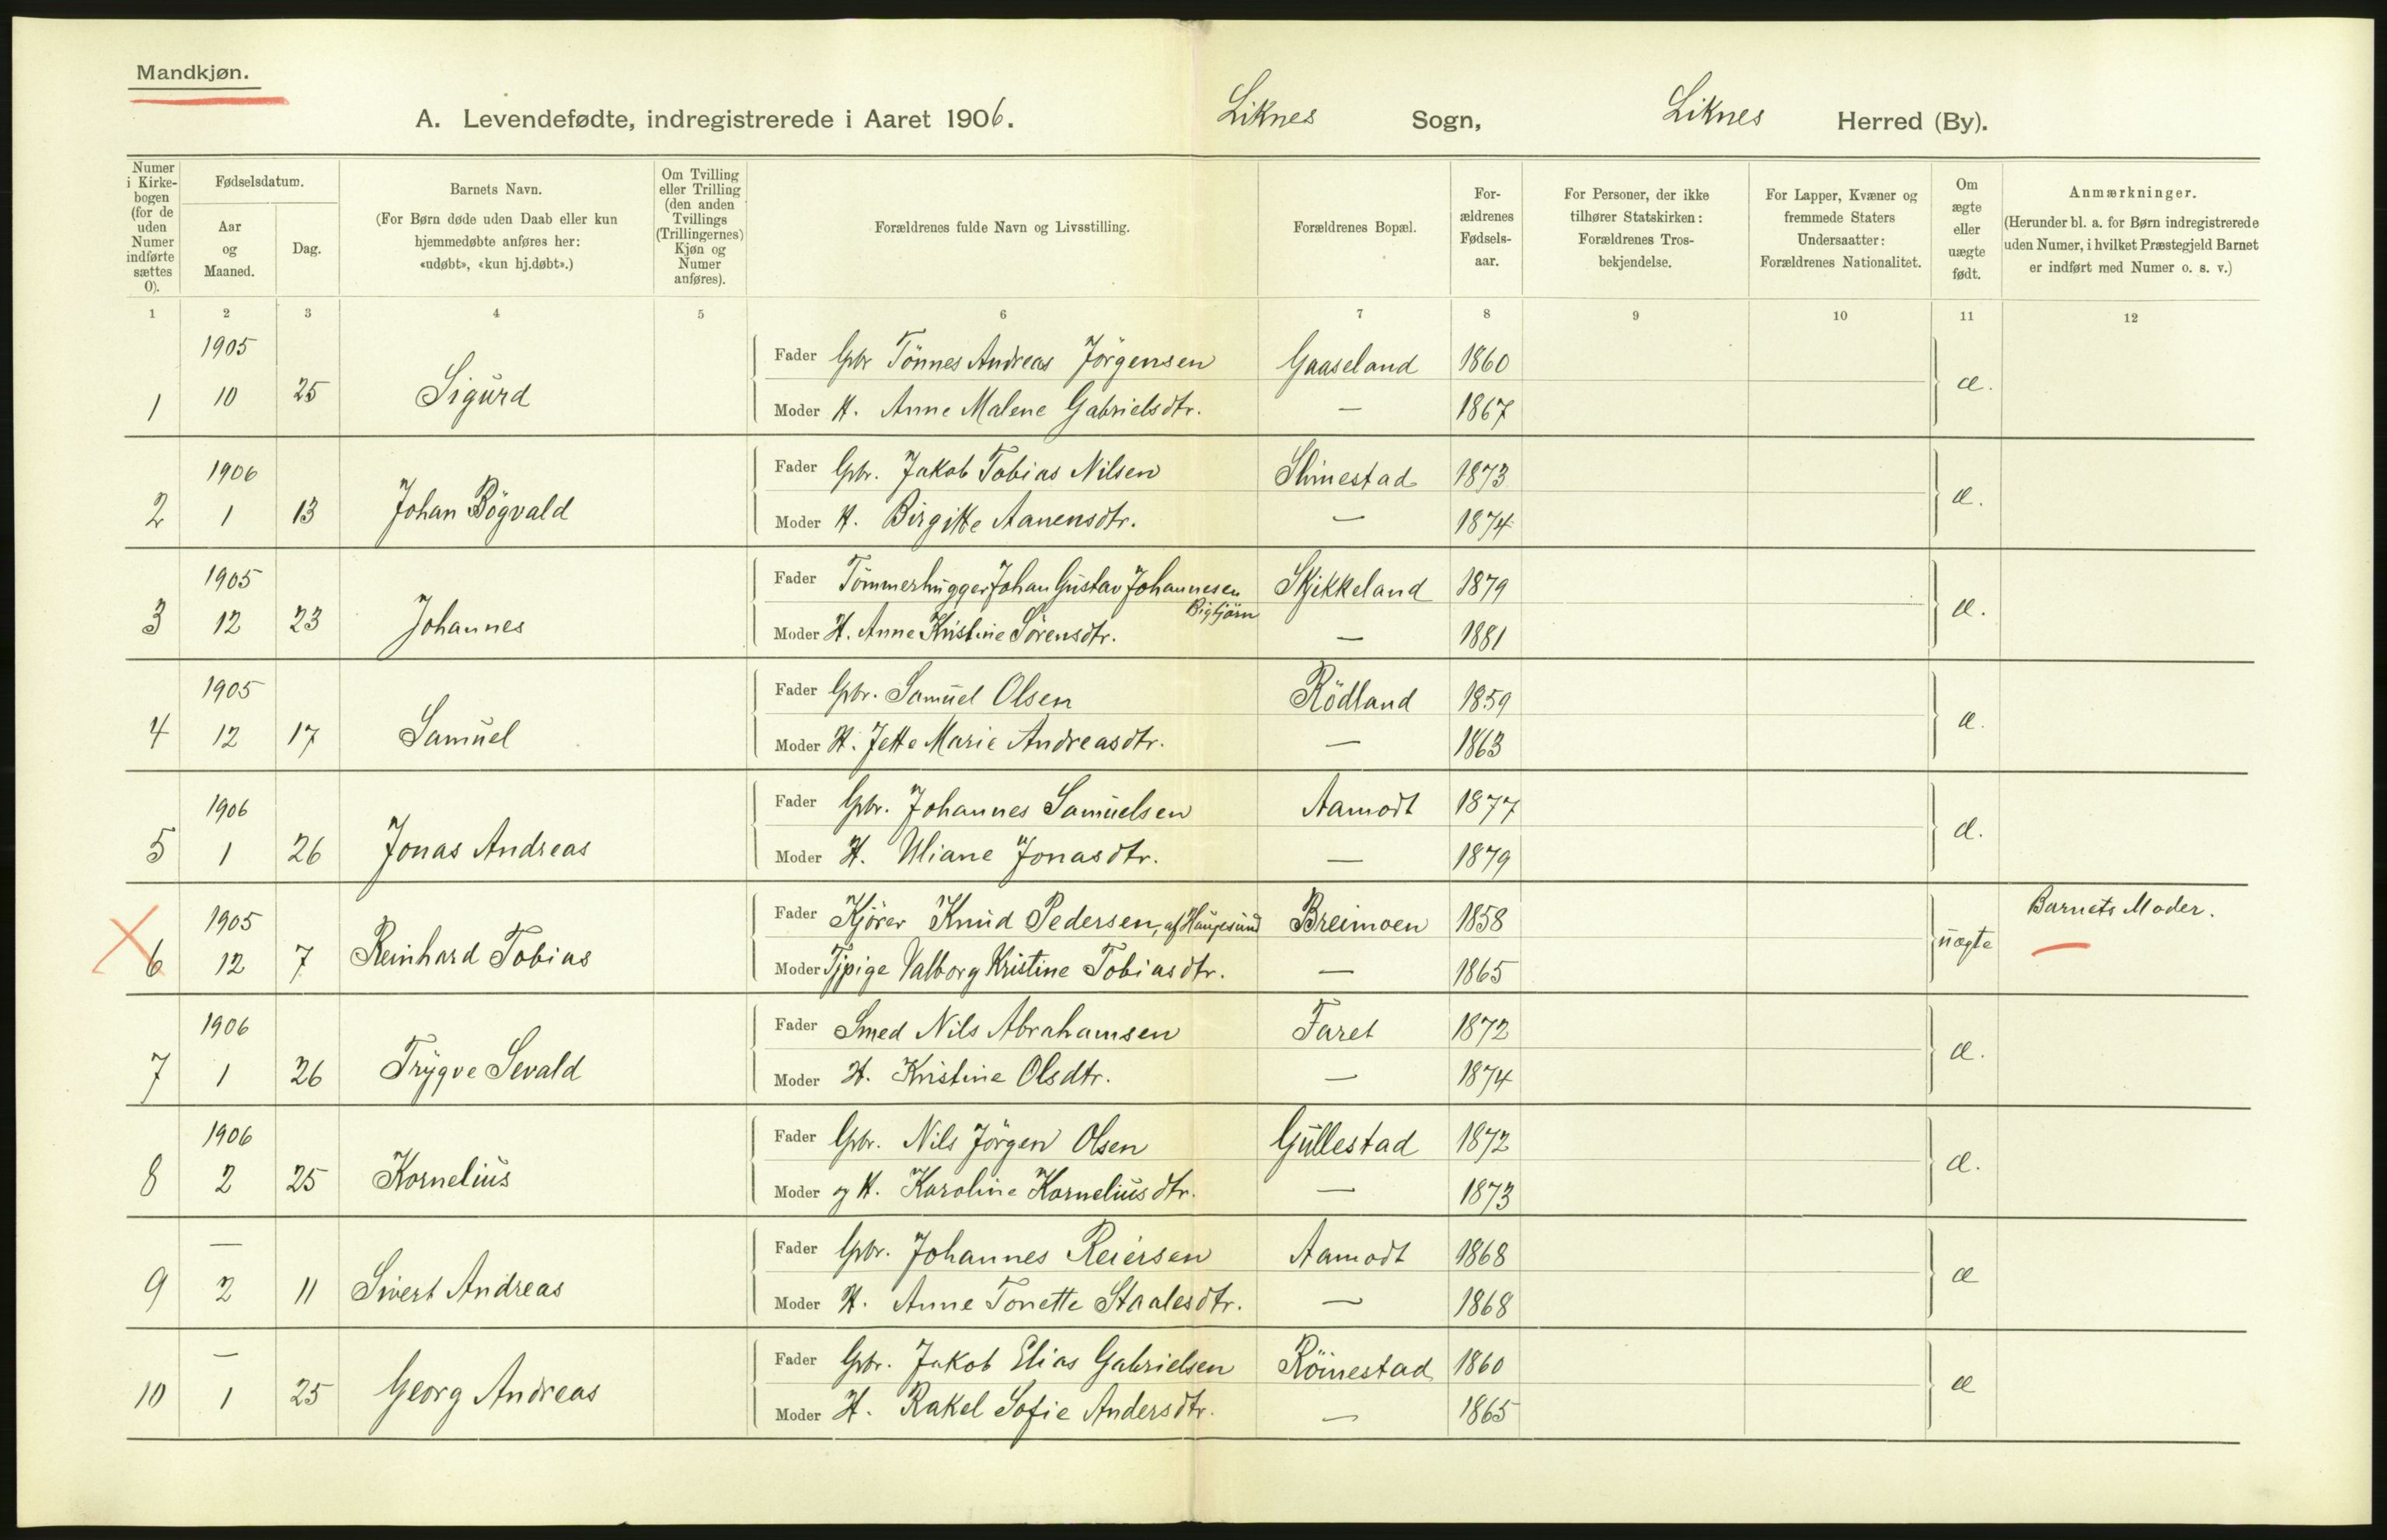 Mandkjøn.
A. Levendefødte, indregistrerede i Aaret 1906. Liknes Sogn, Liknes Herred (By).
Numer i Kirke-bogen (for de uden Numer indførte sættes 0).
Fødselsdatum.
Aar og Maaned.
Dag.
Barnets Navn.
(For Børn døde uden Daab eller kun hjemmedøbte anføres her: «udøbt», «kun hj.døbt».)
Om Tvilling eller Trilling (den anden Tvillings (Trillingernes) Kjøn og Numer anføres).
Forældrenes fulde Navn og Livsstilling.
Forældrenes Bopæl.
For-ældrenes Fødsels-aar.
For Personer, der ikke tilhører Statskirken: Forældrenes Tros-bekjendelse.
For Lapper, Kvæner og fremmede Staters Undersaatter: Forældrenes Nationalitet.
Om ægte eller uægte født.
Anmærkninger.
(Herunder bl. a. for Børn indregistrerede uden Numer, i hvilket Præstegjeld Barnet er indført med Numer o. s. v.)
1 2 3 4 5 6 7 8 9 10 11 12
1905 Fader Gbr Tönnes Andreas Jörgensen Gaaseland 1860
1 10 25 Sigurd Moder H. Anne Malene Gabrielsdtr. — 1867 æ.
1906 Fader Gbr. Jakob Tobias Nilsen Slimestad 1873
2 1 13 Johan Bögvald Moder H. Birgitte Aanensdtr. — 1874 æ.
1905 Fader Tömmerhugger Johan Gustav Johannesen Bigtjörn Skjekkeland 1879
3 12 23 Johannes Moder H. Anne Kristine Sörensdtr. — 1881 æ.
1905 Fader Gbr. Samuel Olsen Rödland 1859
4 12 17 Samuel Moder H. Jette Marie Andreasdtr. — 1863 æ.
1906 Fader Gbr. Johannes Samuelsen Aamodt 1877
5 1 26 Jonas Andreas Moder H. Uliane Jonasdtr. — 1879 æ.
1905 Fader Kjörer Knud Pedersen, af Haugesund Breimoen 1858 Barnets Moder.
6 12 7 Reinhard Tobias Moder Tjpige Valborg Kristine Tobiasdtr. — 1865 uægte —
1906 Fader Smed Nils Abrahamsen Faret 1872
7 1 26 Trygve Sevald Moder H. Kristine Olsdtr. — 1874 æ.
1906 Fader Gbr. Nils Jörgen Olsen Gullestad 1872
8 2 25 Kornelius Moder og H. Karoline Korneliusdtr. — 1873 æ.
— Fader Gbr. Johannes Reiersen Aamodt 1868
9 2 11 Sivert Andreas Moder H. Anne Tonette Staalesdtr. — 1868 æ
— Fader Gbr. Jakob Elias Gabrielsen Röinestad 1860
10 1 25 Georg Andreas Moder H. Rakel Sofie Andersdtr. — 1865 æ